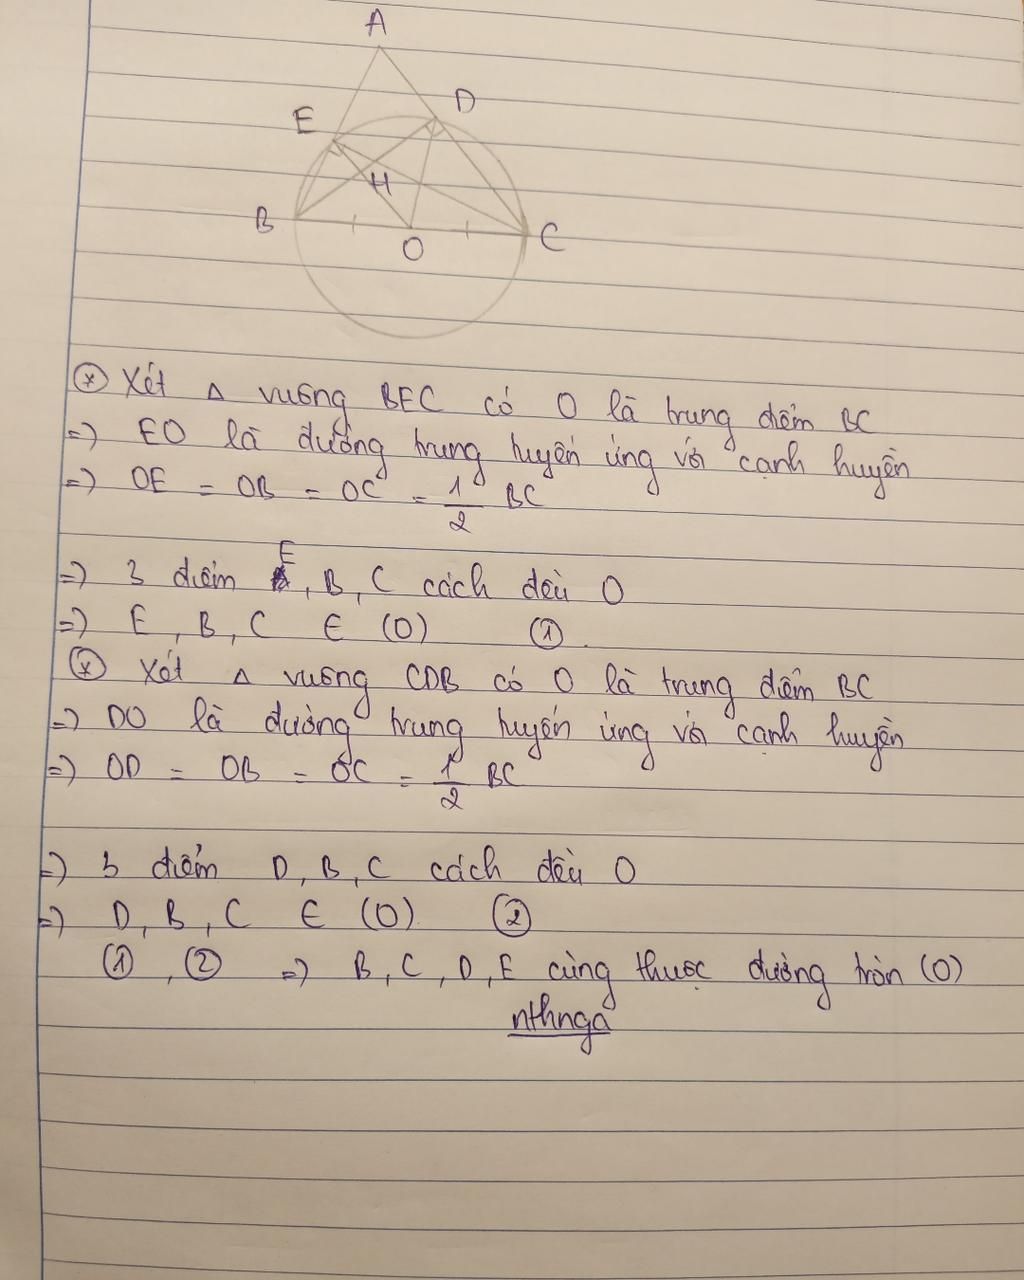 A
E
D
H
B
O
C
⊛ Xét Δ vuông BEC có O là trung điểm BC
=> EO là đường trung tuyến ứng với cạnh huyền
=> OE = OB = OC = 1/2 BC
=> 3 điểm E, B, C cách đều O
=> E, B, C ∈ (O) ①.
⊛ Xét Δ vuông CDB có O là trung điểm BC
=> DO là đường trung tuyến ứng với cạnh huyền
=> OD = OB = OC = 1/2 BC
=> 3 điểm D, B, C cách đều O
=> D, B, C ∈ (O) ②
①, ② => B, C, D, E cùng thuộc đường tròn (O)
nthnga